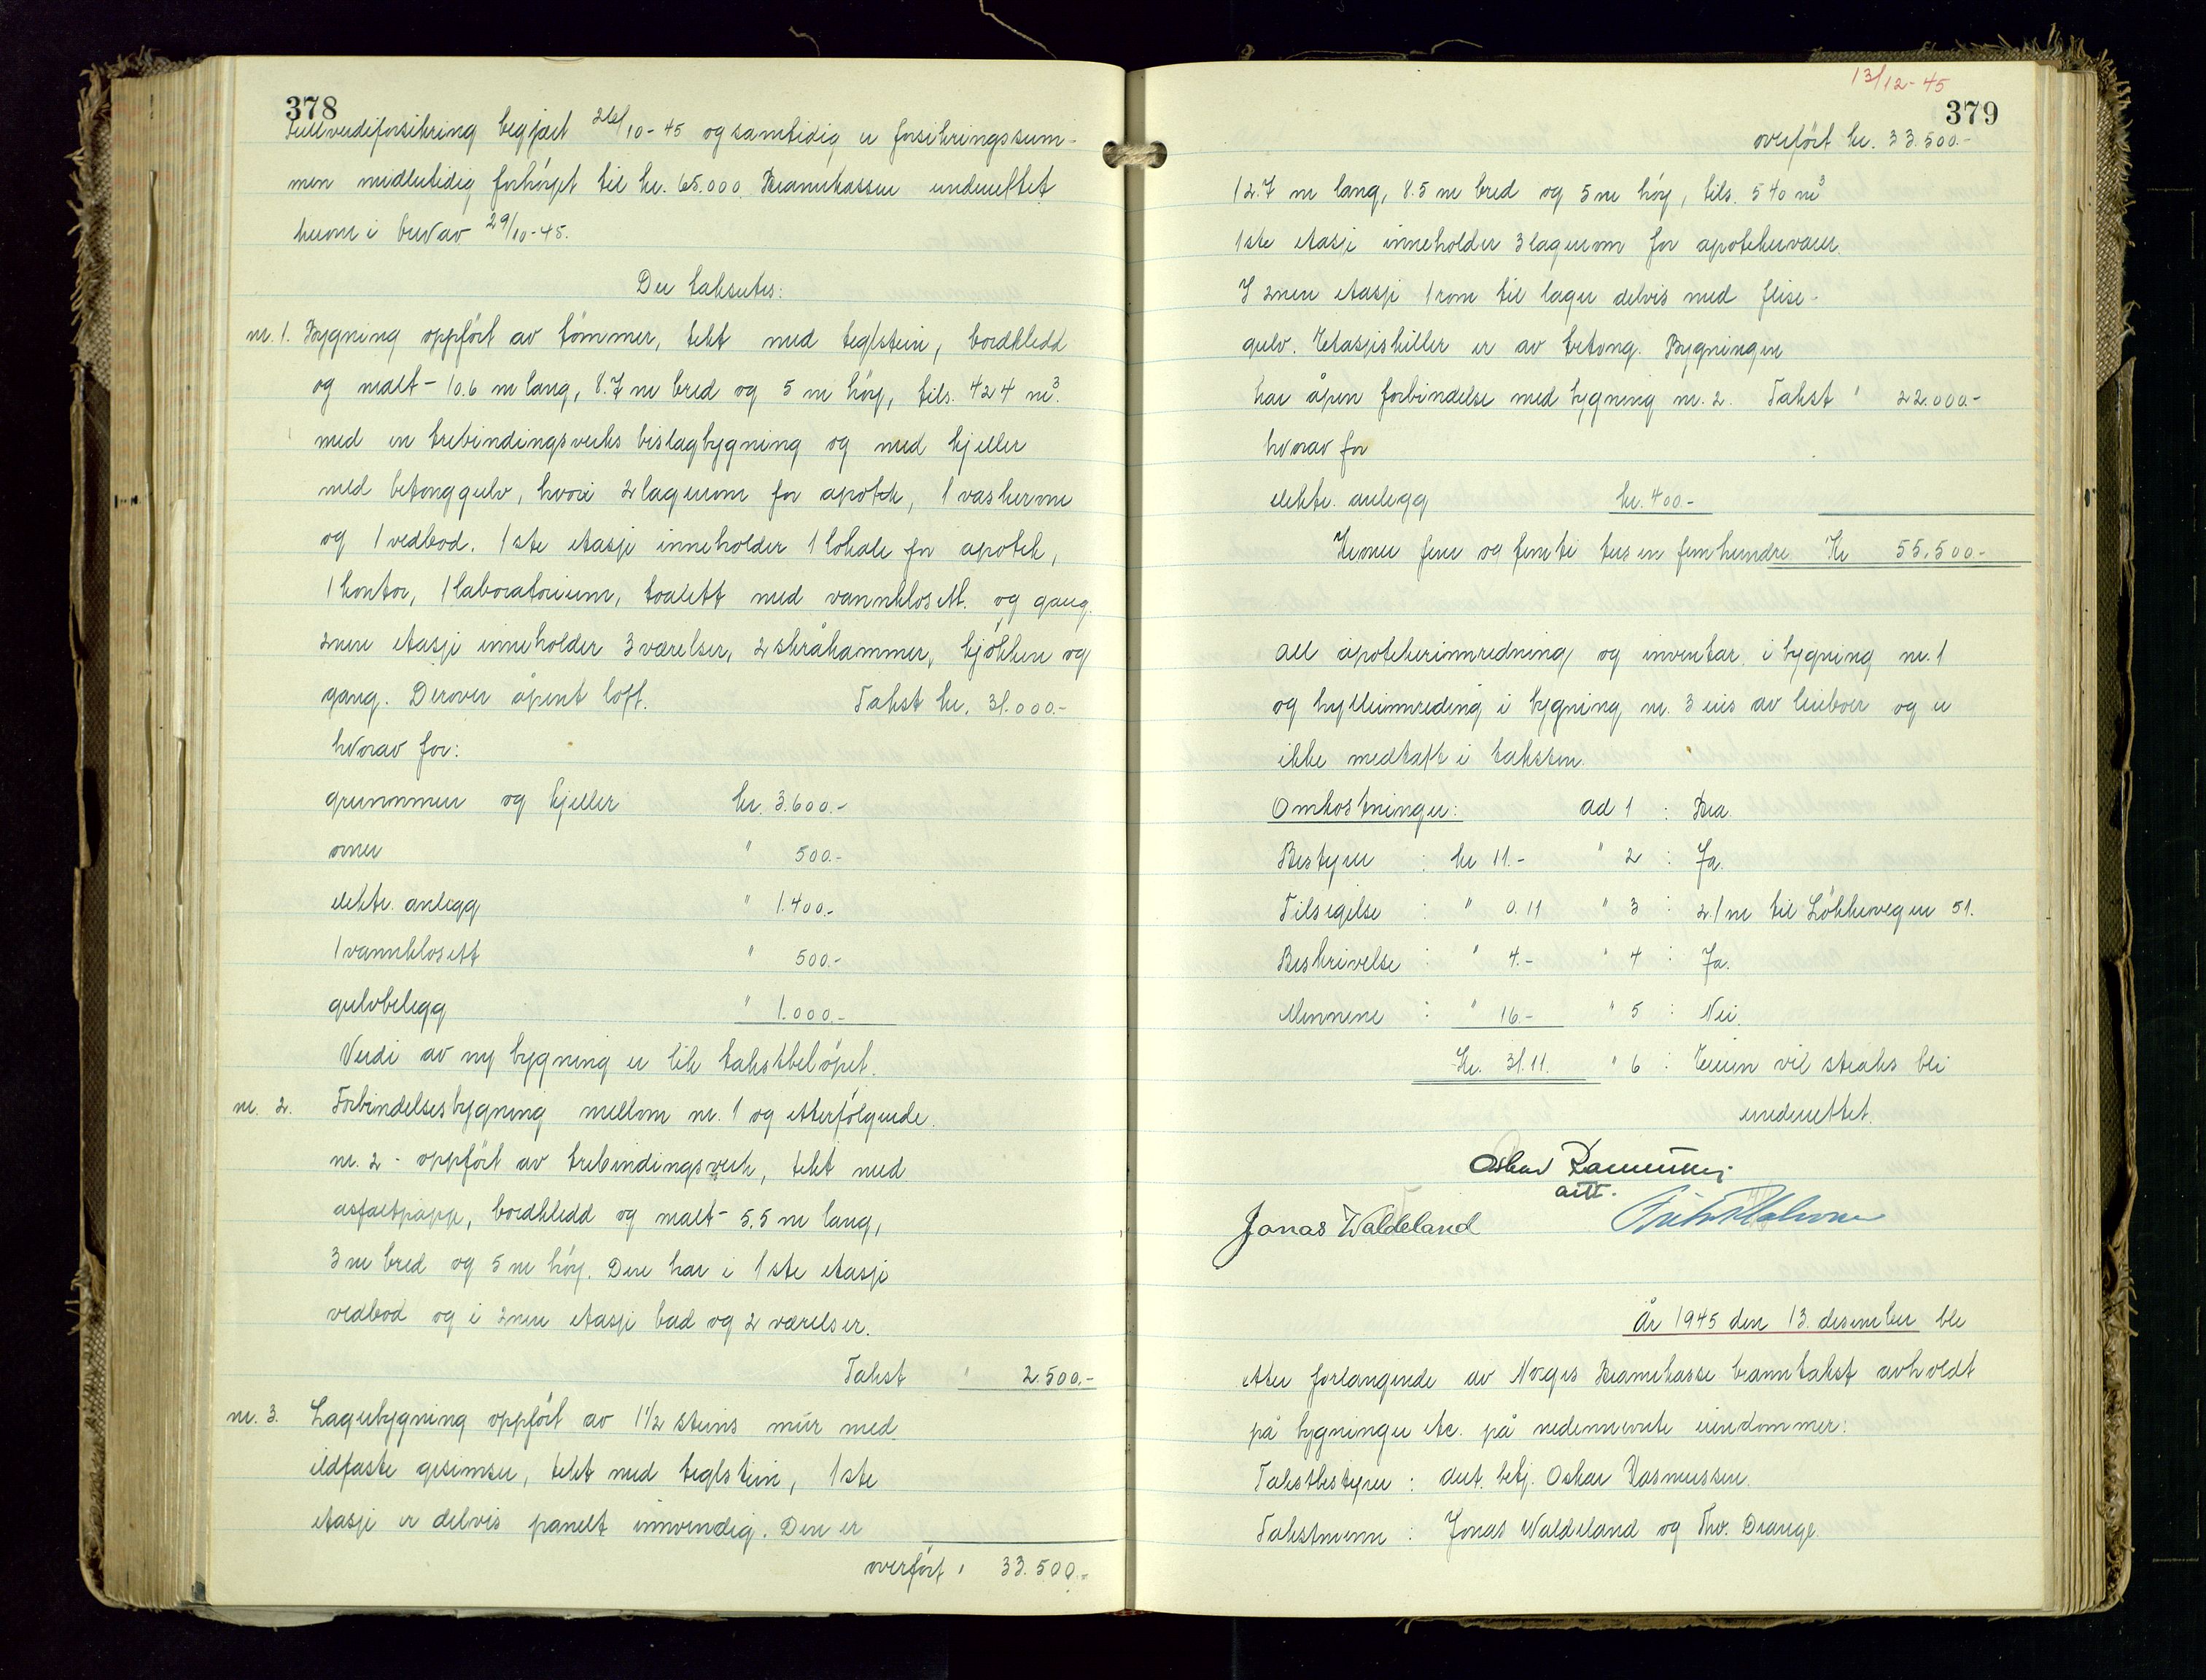 378
Fullverdiforsikring begjært 26/10-45 og samtidig er forsikringssum-
men midlertidig forhöyet til kr. 65.000. Brannkassen underrettet
herom i brev av 29/10-45.
Der takseres:
nr. 1. Bygning oppfört av tömmer, tekt med teglstein, bordkledd
og malt - 10.6 m lang, 8.7 m bred og 5 m höy, tils. 424 m³.
med en trebindingsverks bislagbygning og med kjeller
med betonggulv, hvori 2 lagerrom for apotek, 1 vaskerom
og 1 vedbod. 1ste etasje inneholder 1 lokale for apotek,
1 kontor, 1 laboratorium, toalett med vannklosett. og gang.
2nen etasje inneholder 3 værelser, 2 skråkammer, kjökken og
gang. Derover åpent loft. Takst kr. 31.000.-
hvorav for:
grunnmur og kjeller kr. 3.600.-
ovner " 500.-
elektr. anlegg " 1.400.-
1 vannklosett " 500.-
gulvbelegg " 1.000.-
Verdi av ny bygning er lik takstbelöpet.
nr. 2. Forbindelsesbygning mellom nr. 1 og etterfölgende
nr. 2 - oppfört av trebindingsverk, tekt med
asfaltpapp, bordkledd og malt - 5.5 m lang,
3 m bred og 5 m höy. Den har i 1ste etasje
vedbod og i 2nen etasje bad og 2 værelser.
Takst " 2.500.-
nr. 3. Lagerbygning oppfört av 1 1/2 steins mur med
ildfaste gesimser, tekt med teglstein, 1ste
etasje er delvis panelt innvendig. Den er
overfört " 33.500.-
13/12-45
379
overfört kr. 33.500.-
12.7 m lang, 8.5 m bred og 5 m höy, tils. 540 m³
1ste etasje inneholder 3 lagerrom for apotekervarer.
I 2nen etasje 1 rom til lager delvis med flise-
gulv. Etasjeskiller er av betong. Bygningen
har åpen forbindelse med bygning nr. 2. Takst " 22.000.-
hvorav for
elektr. anlegg kr. 400.-
Kroner fem og femti tusen femhundre Kr 55.500.-
All apotekerinnredning og inventar i bygning nr. 1
og hylleinnreding i bygning nr. 3 eies av leieboer og er
ikke medtatt i taksten.
Omkostninger: ad 1 : Bra.
Bestyrer : kr 11.- " 2 : Ja.
Tilsigelse : " 0.11 " 3 : 2.1 m til Lökkevegen 51.
Beskrivelse : " 4.- " 4 : Ja.
Mennene : " 16.- " 5 : Nei.
Kr. 31.11. " 6 : Eieren vil straks bli
underrettet.
Oskar Rasmussen
autt.
Jonas Waldeland
År 1945 den 13. desember ble
etter forlangende av Norges Brannkasse branntakst avholdt
på bygninger etc. på nedennevnte eiendommer:
Takstbestyrer : aut. betj. Oskar Rasmussen.
Takstmenn : Jonas Waldeland og Thv. Drange.